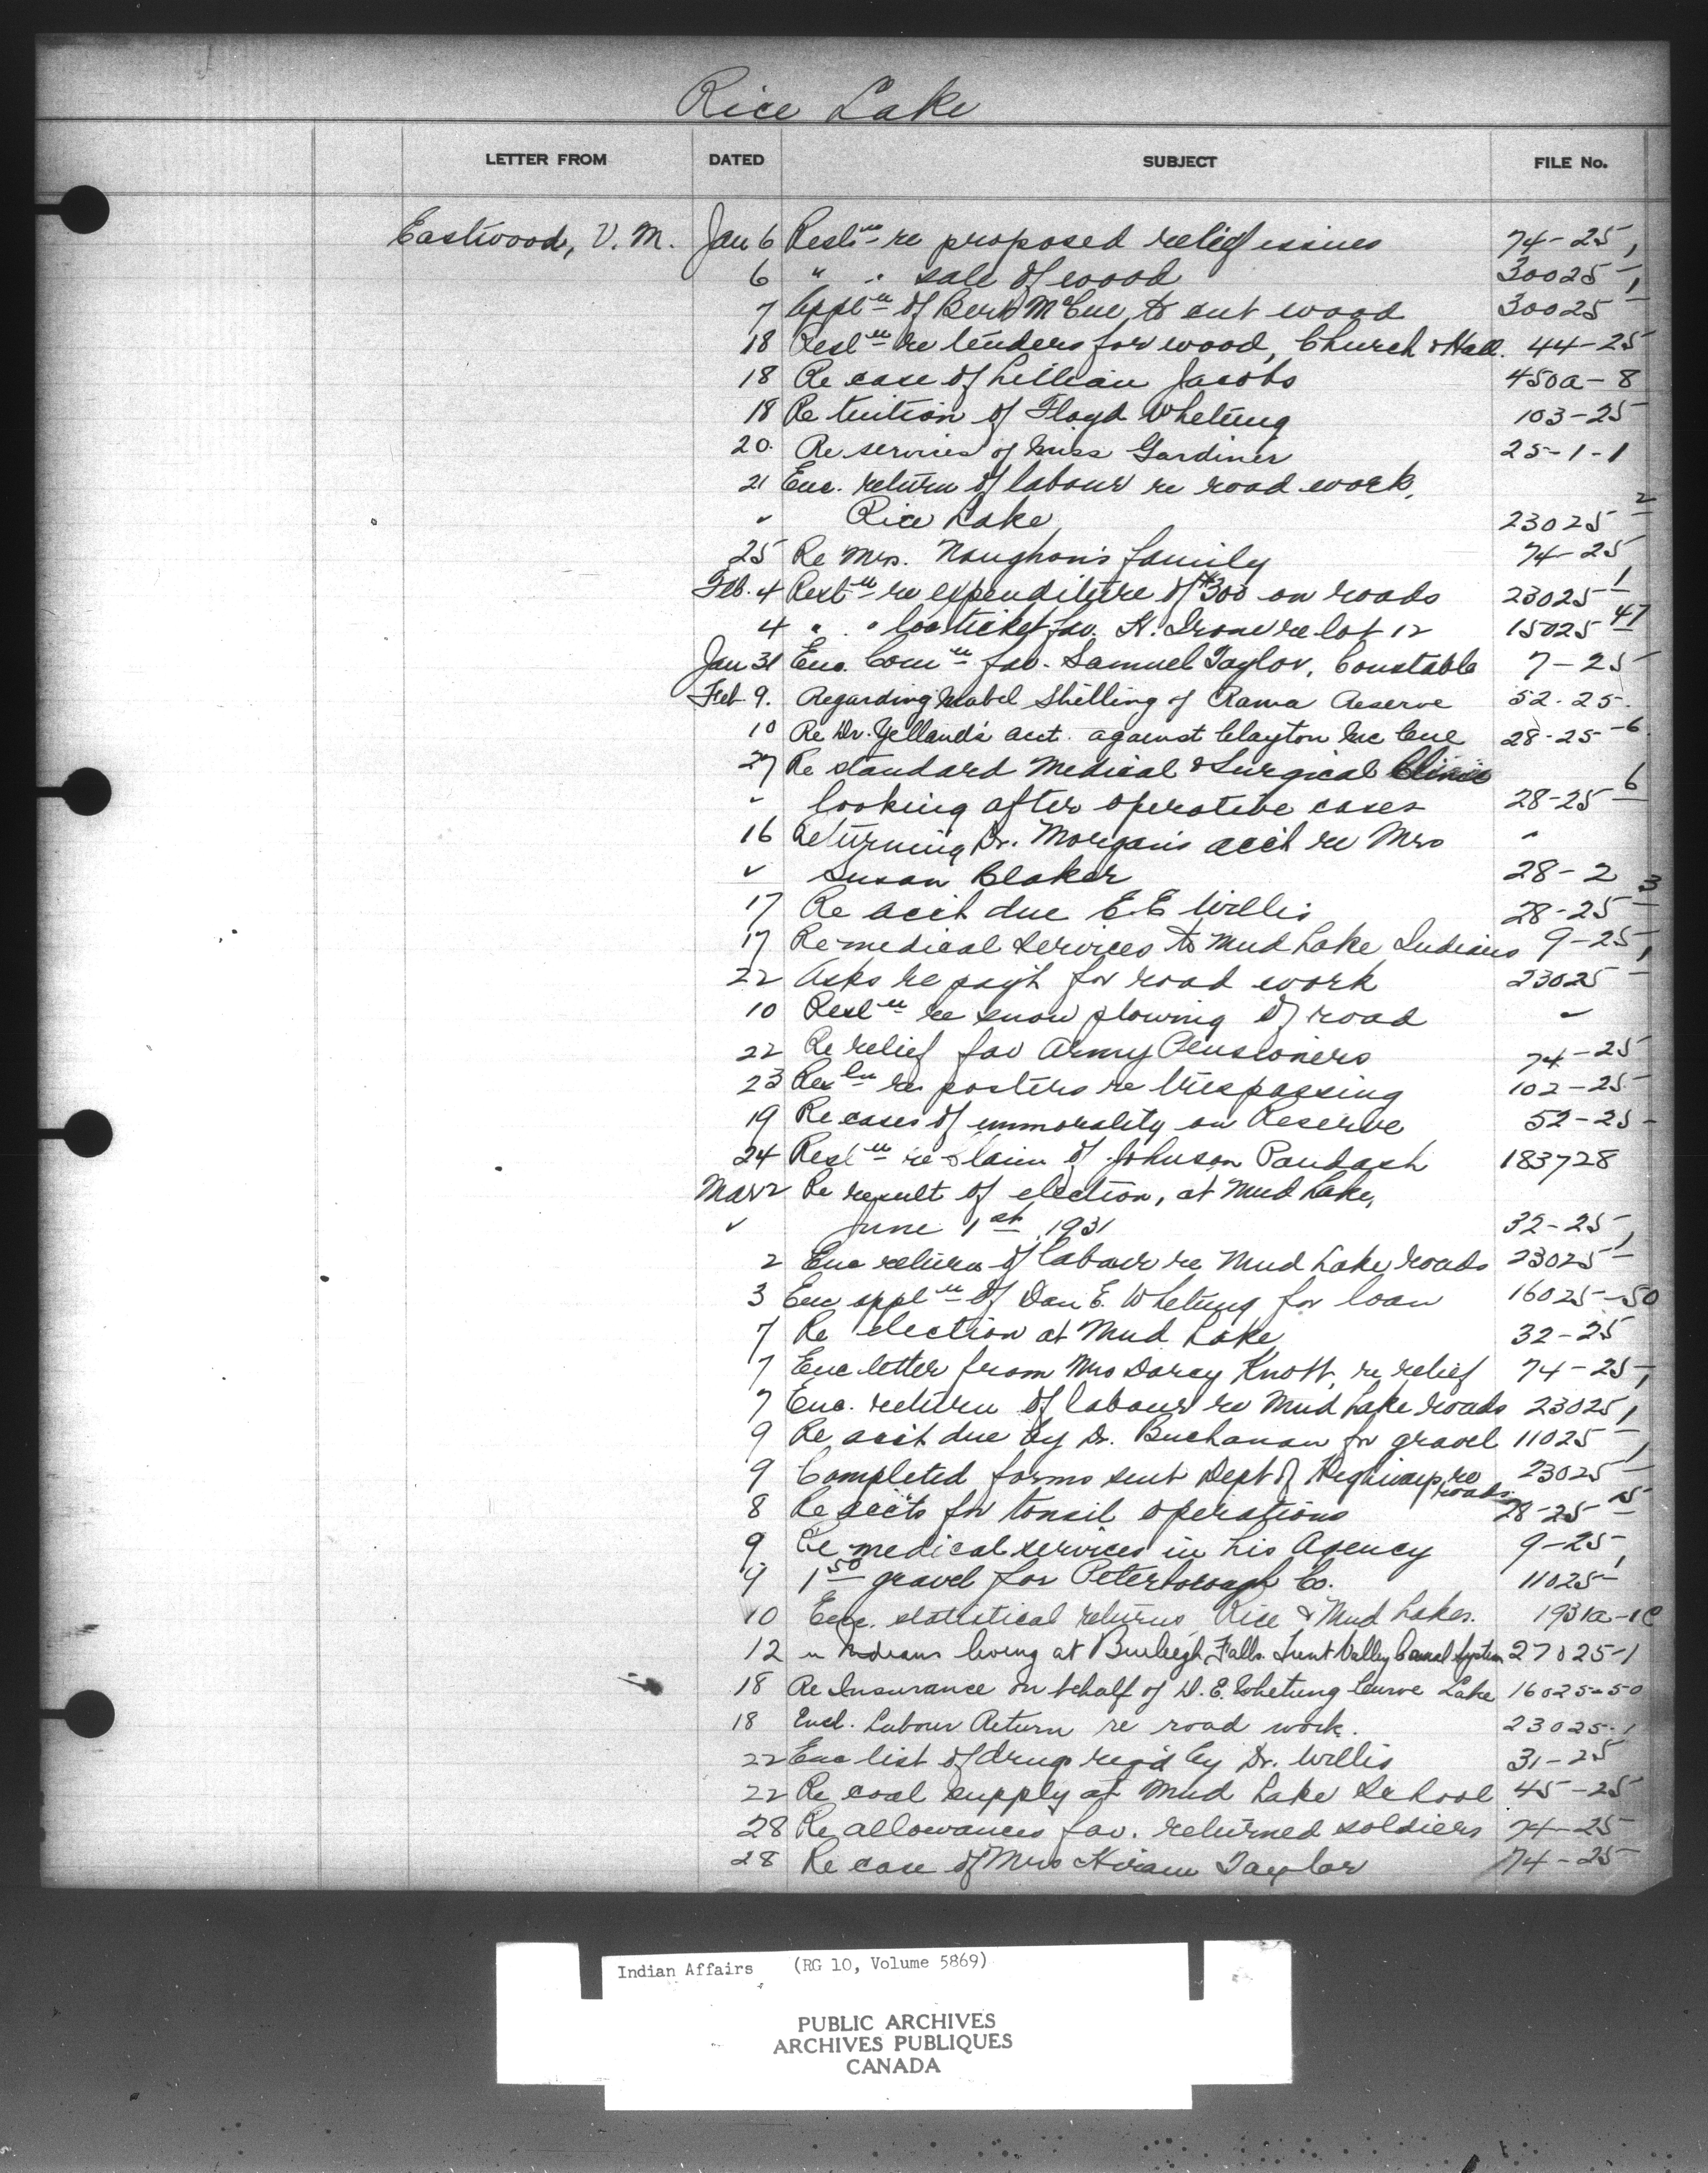 Rice Lake
LETTER FROM DATED SUBJECT FILE No.
Eastwood, V. M. Jan 6 Resl'n re proposed relief issues 74-25
6 " " sale of wood 30025-1
7 Appl'n of Bert McCue to cut wood 30025-1
18 Resl'n re tenders for wood, Church & Hall. 44-25
18 Re case of Lillian Jacobs 450a-8
18 Re tuition of Floyd Whetung 103-25
20. Re services of Miss Gardiner 25-1-1
21 Enc. return of labour re road work,
✓ Rice Lake 23025-2
25 Re Mrs. Naughon's family 74-25
Feb. 4 Resl'n re expenditure of $300 on roads 23025-1
4 " " loc. ticket fav. H. Irons re lot 12 15025-47
Jan 31 Enc. Com'n fav. Samuel Taylor, Constable 7-25
Feb 9. Regarding Mabel Shilling of Rama Reserve 52-25.
10 Re Dr. Yelland's acct. against Clayton McCue 28-25-6
27 Re standard Medical & Surgical Clinic
" looking after operative cases 28-25-6
16 Returning Dr. Morgan's acct re Mrs "
✓ Susan Blaker 28-2
17 Re acct due E.E Willis 28-25-3
17 Re medical services to Mud Lake Indians 9-25
22 Asks re payt for road work 23025-1
10 Resl'n re snow plowing of road ✓
22 Re relief fav Army Pensioners 74-25
23 Res'ln re posters re trespassing 102-25
19 Re cases of immorality on Reserve 52-25-
24 Resl'n re claim of Johnson Paudash 183728
Mar 2 Re result of election, at Mud Lake,
✓ June 1st, 1931 32-25
2 Enc return of labour re Mud Lake roads 23025-1
3 Enc appl'n of Dan E. Whetung for loan 16025-50
7 Re election at Mud Lake 32-25
7 Enc letter from Mrs Darcy Knott, re relief 74-25
7 Enc. return of labour re Mud Lake roads 23025-1
9 Re acct due by Dr. Buchanan for gravel 11025-1
9 Completed forms sent Dept of Highways re 23025-1
roads.
8 Re accts for tonsil operations 28-25-15
9 Re medical services in his Agency 9-25
9 1 50 gravel for Peterborough Co. 11025-1
10 Enc. statistical returns, Rice & Mud Lakes. 1931a-1C
12 " Indians living at Burleigh Falls. Trent Valley Canal System 27025-1
18 Re Insurance on behalf of D. E. Whetung Curve Lake 16025-50
18 Encl. Labour Return re road work. 23025-1
22 Enc list of drugs reqd by Dr. Willis 31-25
22 Re coal supply at Mud Lake School 45-25
28 Re allowances fav. returned soldiers 74-25
28 Re case of Mrs Hiram Taylor 74-25
Indian Affairs (RG 10, Volume 5869)
PUBLIC ARCHIVES
ARCHIVES PUBLIQUES
CANADA